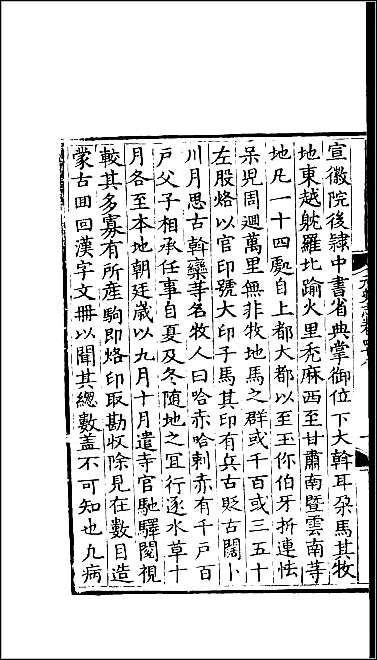 宣徽院後隸中書省典掌御位下大斡耳朶馬其牧
地東越躭羅北踰火里禿麻西至甘肅南曁雲南䓁
地凡一十四處自上都大都以至玉你伯牙折連怯
呆児周迴萬里無非牧地馬之群或千百或三五十
左股烙以官印號大印子馬其印有兵古貶古闊卜
川月思古斡欒䓁名牧人曰哈赤哈剌赤有千戸百
戸父子相承任事自夏及冬随地之冝行逐水草十
月各至本地朝廷歲以九月十月遣寺官馳驛閱視
較其多寡有所産駒即烙印取勘收除見在數目造
蒙古囬囬漢字文冊以聞其緫數蓋不可知也凢病